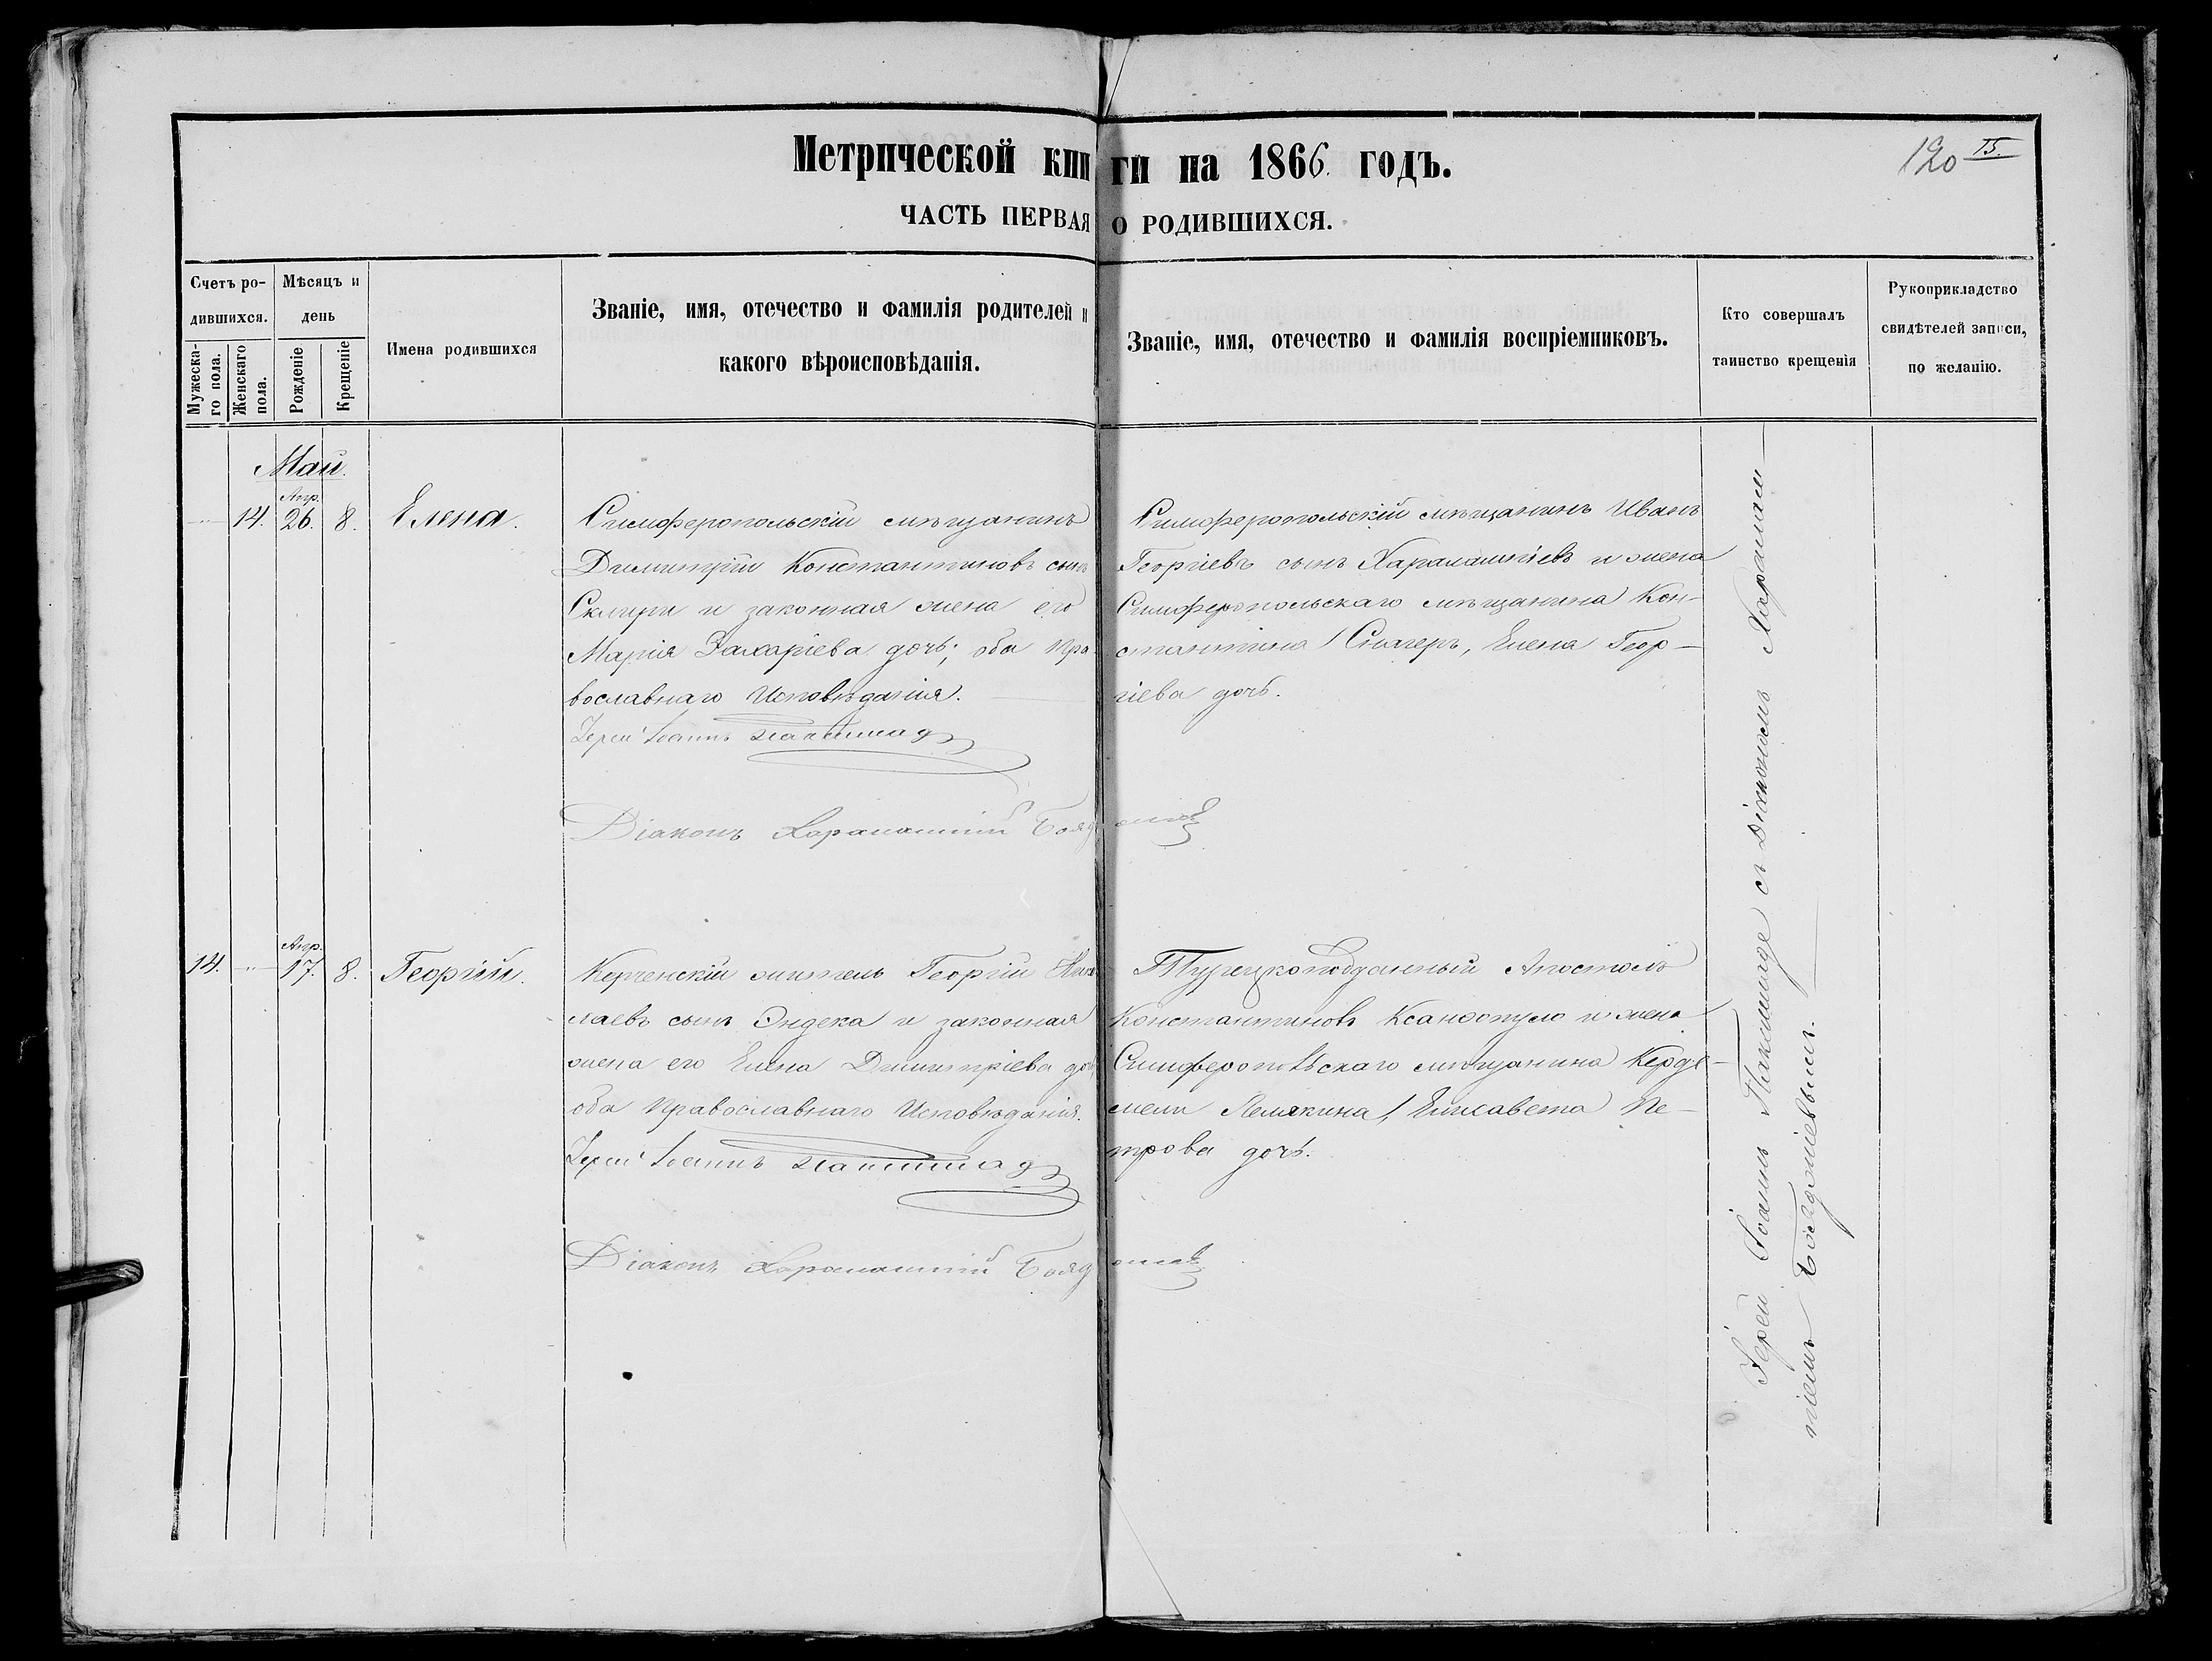 Метрической книги на 1866. годъ.
120 15.
ЧАСТЬ ПЕРВАЯ О РОДИВШИХСЯ.
Счетъ родившихся.
Мужескаго пола.
Женскаго пола.
Мѣсяцъ и день
Рожденіе
Крещеніе
Имена родившихся
Званіе, имя, отечество и фамилія родителей и
какого вѣроисповѣданія.
Званіе, имя, отечество и фамилія воспріемниковъ.
Кто совершалъ
таинство крещенія
Рукоприкладство
свидѣтелей записи,
по желанію.
Май.
14. Апр. 26. 8. Елена.
Симферопольскій мѣщанинъ
Димитрій Константиновъ сынъ
и законная жена его
Марія Захаріева дочь; оба Пра-
вославнаго Исповѣданія.
Іерей Іоаннъ
Діаконъ Харалампій
Симферопольскій мѣщанинъ Иванъ
Георгіевъ сынъ Харалампіевъ и жена
Симферопольскаго мѣщанина Кон-
стантина Елена Геор-
гіева дочь.
14. Апр. 17. 8. Георгій.
Керченскій житель Георгій
лаевъ сынъ Эндека и законная
жена его Елена Димитріева дочь,
оба Православнаго Исповѣданія.
Іерей Іоаннъ
Діаконъ Харалампій
Турецкоподданный Апостолъ
Константиновъ Ксанфопуло и жена
Симферопольскаго мѣщанина
Елисавета Пе-
трова дочь.
Іерей Іоаннъ съ Діакономъ Харалам-
піемъ